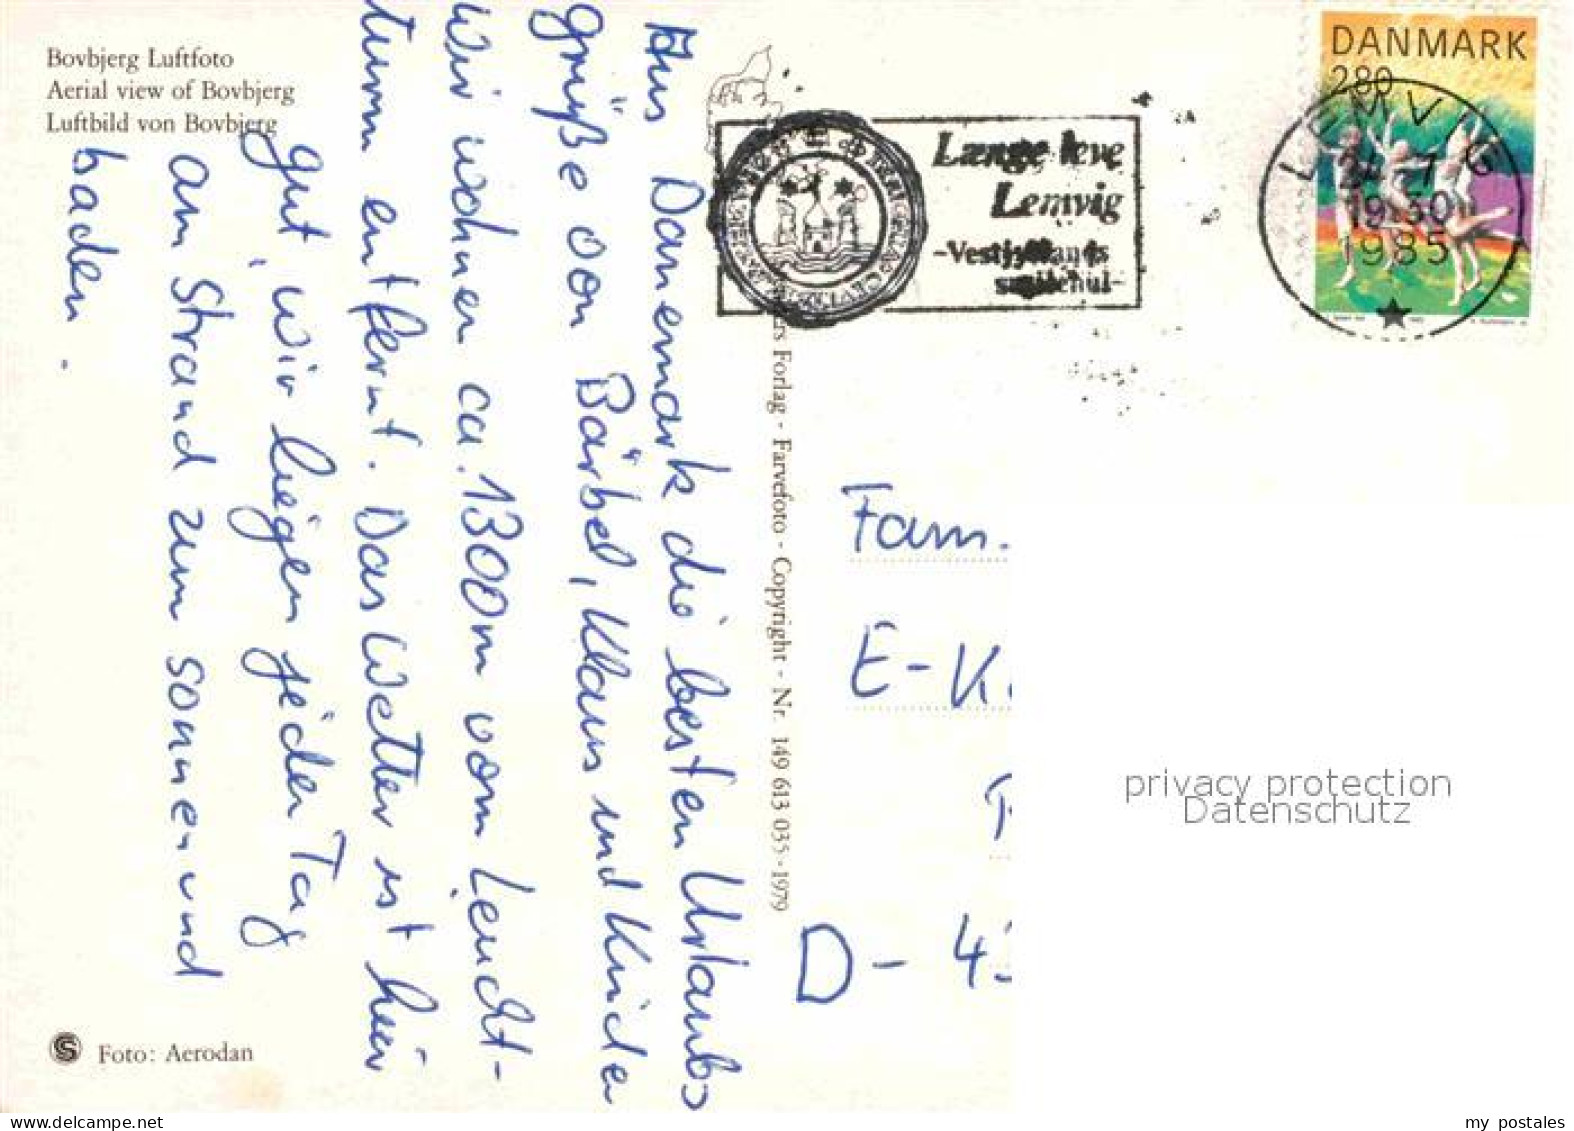 Bovbjerg Luftfoto
Aerial view of Bovbjerg
Luftbild von Bovbjerg
Aus Danemark die besten Urlaubs
grüße von Bärbel, Klaus und Kinder
Wir wohnen ca. 1300m vom Leucht-
turm entfernt. Das Wetter ist hier
gut, wir liegen jeden Tag
am Strand zum sonnen und
baden.
Foto: Aerodan
ers Forlag - Farvefoto - Copyright - Nr. 149 613 035 - 1979
Længe leve
Lemvig
-Vestjyllands
DANMARK
280
LEMVIG
24 7
19.30
1985
Fam.
E-K.
D- 4
privacy protection
Datenschutz
www.delcampe.net
my_postales